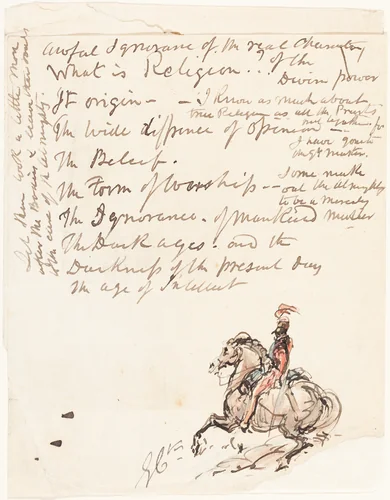 awful Ignorance of the real Character
of the
What is Religion..?
Divine power
It origin —
— I know as much about
true Religion as all the Priests
put together for
I have gone to
the Gt master.
The wide diffrence of Openion —
The Beleef.
The Form of Worship —
— Some make
out the Almighty
to be a Merciless
The Ignorance. of Mankind
The Dark ages. and the
Darkness of the present day
the age of Intellect
Let them look a little more
after the Bodies & leave the souls
to the care of the Almighty.